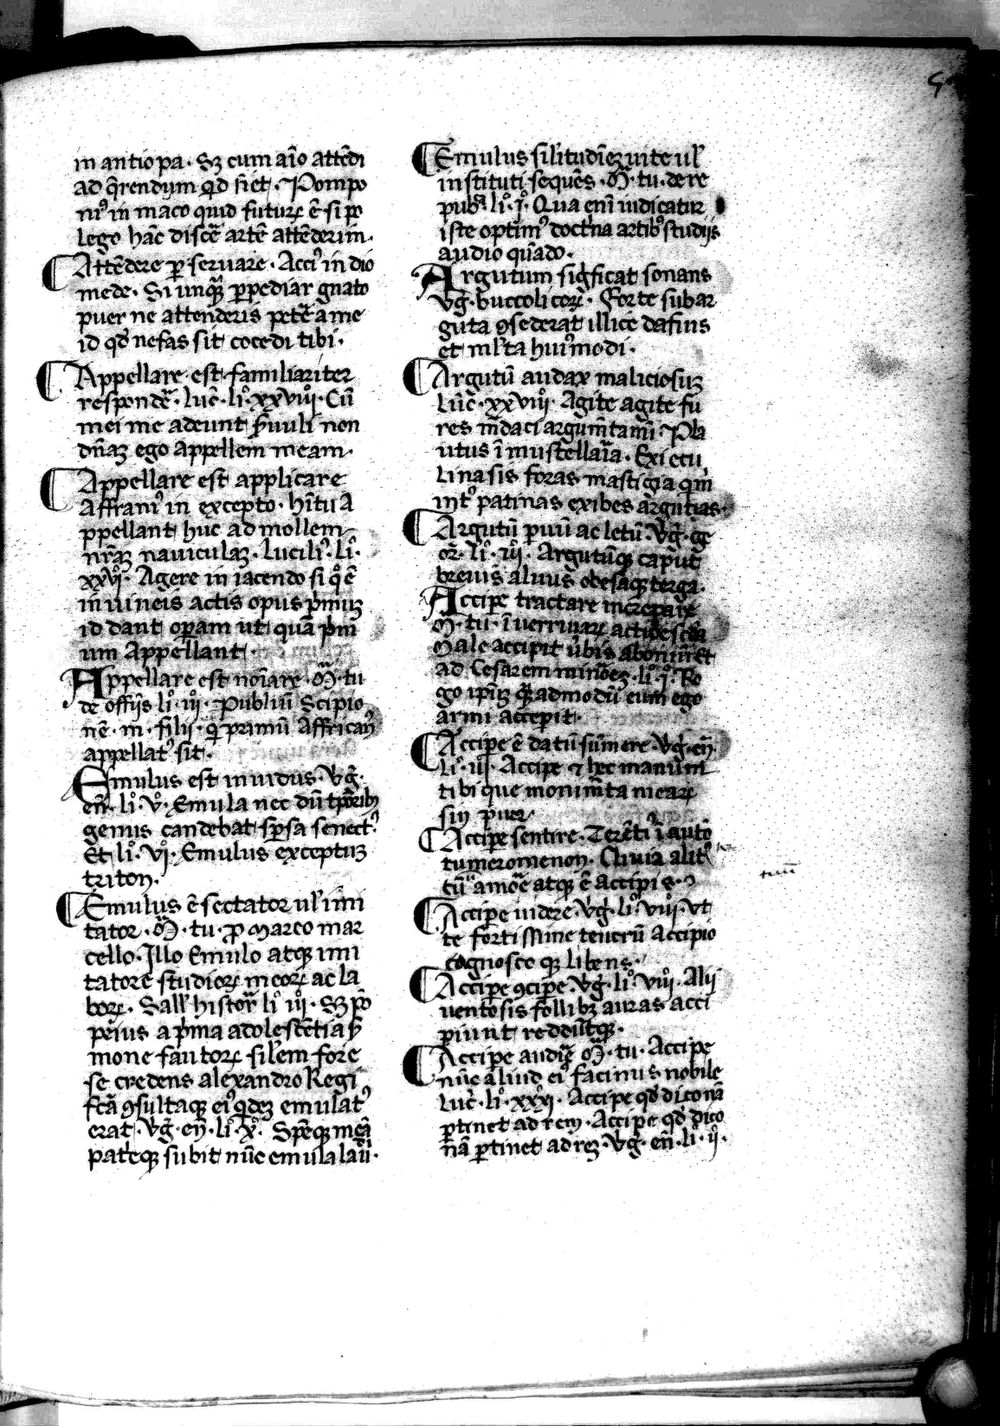 in antiopa · Sꝫ cum aīo attēdi
ad q̄rendum qd̄ fiet · Pompo
niꝰ in maco quid futurꝝ ē si p̄o
lego hāc discē artē attēderim ·
Attēdere ꝑ seruare · Acciꝰ in dio
mede · Si unqᷓ ꝑpediar gnato
puer ne attenderis petē a me
id qd̄ nefas sit cōcedi tibi ·
Appellare est familiariter
respondē · luc̄ · li° · xxviii° · Cū
mei me adeunt s̄uuli non
dn̄aꝫ ego appellem meam ·
Appellare est applicare
Affraniꝰ in excepto · hītu a
ppellant huc ad mollem
nr̄aꝫ nauiculaꝫ · luciliꝰ · li° ·
xxvi° · Agere in iacendo si q° ē
in uineis actis opus p̄miuꝫ
id dant oꝑam ut quā p̄mi
um Appellant ·
Appellare est noīare · M̄ · tu ·
de offiīs li° · iii° · Publiū Scipio
nē · m · filii · q̄ pramū Affricanꝰ
appellatꝰ sit ·
Emulus est inuidus · vḡ ·
en̄ · li° · v° · Emula nec dū tp̄oribꝫ
genus candebat sꝑsa senectꝰ ·
Et li° · vi° · Emulus exceptuꝫ
triton ·
Emulus ē sectator ul' imi
tator · M̄ · tu · ꝓ marco mar
cello · Illo Emulo atqꝫ imi
tatore studiorꝝ meorꝝ ac la
borꝝ · Sall' histor̄ li° iii° · Sꝫ p̄o
perius a p̄ma adolescētia s̄
mone fautorꝝ sil'em fore
se credens alexandro Regi
fcā ꝯsultaqꝫ eiꝰ qdeꝫ emulatꝰ
erat · vḡ · en̄ · li° · x° · Sp̄eqꝫ meā
pat'eqꝫ subit nūc emula lau̅ ·
Emulus sil'itudīeꝫ uite ul'
instituti sequēs · M̄ · tu · de re
pub̄a li° · i° · Qua enī iudicatur
iste optimꝰ doctna artibꝰ studiis
audio quādo ·
Argutum sig̅ficat sonans
vḡ · buccolicorꝝ · Forte subar
guta ꝯsederat illice dafius
et ml'ta huiꝰmodi ·
Argutū audax maliciosuꝫ
lūc̄ · xxviii° · Agite agite fu
res mēdaci argum̄tami · Pla
utus ī mustellaīa · Exi e cu
lina sis foras mastigia qm̄
int' patinas exibes argutias ·
Argutū ꝑuū ac letū · vḡ · ge
or̄ · li° · iii° · Argutūqꝫ caput
breuis aluus obesaqꝫ terga ·
Accipe tractare increpare
M̄ · tu · ī uerrinarꝝ actiōe scd̄a
Male accipit ūbis abonum̄ et
ad Cesarem minorēꝫ · li° · i° · Ro
go ip̄m qᷓadmodū eum ego
armi accepit ·
Accipe ē datū sumere · vḡ · en̄
li° · iii° · Accipe ⁊ hec manuum
tibi que monim̄ta mearꝝ
sin puer
Accipe sentire · Terēti ī auto
tumeromenon · Quia alit'
tū amoē atqꝫ ē accipis ·
Accipe uidere · vḡ · li° · viii° · vt
te fortissime teucrū Accipio
cognosco qꝫ libens ·
Accipe ꝯcipe · vḡ · li° · viii° · Alii
uentosis follibꝫ auras acci
piunt reddūtqꝫ ·
Accipe audire · M̄ · tu · Accipe
nūc aliud eiꝰ facinus nobile
luc̄ · li° · xxxi · Accipe qd̄ dico nā
ꝑtinet ad rem · Accipe qd̄ dico
nā ꝑtinet ad reꝫ · vḡ · en̄ · li · ii° ·